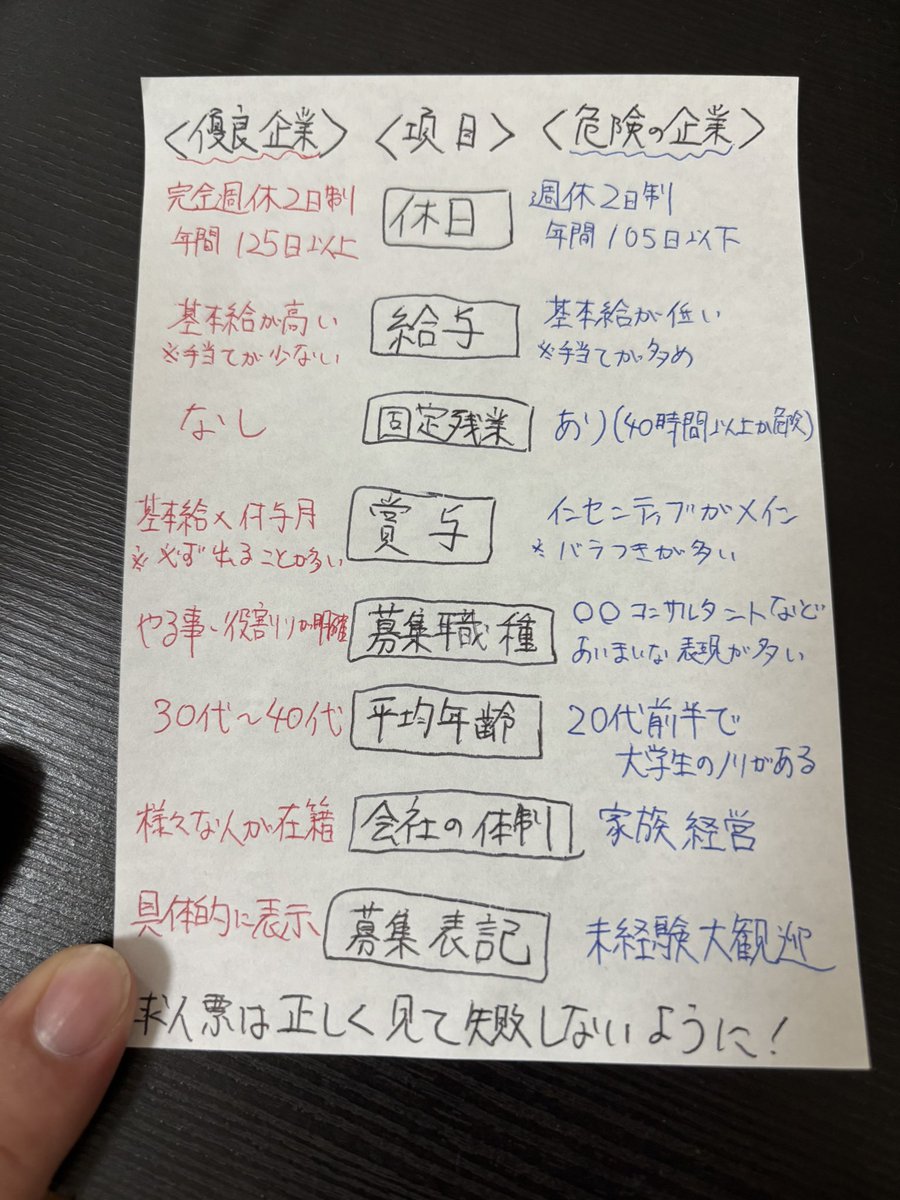 <優良企業> <項目> <危険の企業>
完全週休2日制
年間125日以上
休日
週休2日制
年間105日以下
基本給が高い
※手当てが少ない
給与
基本給が低い
※手当てが多め
なし
固定残業
あり(40時間以上が危険)
基本給×付与月
※必ず出ることが多い
賞与
インセンティブがメイン
※バラつきが多い
やる事・役割りが明確
募集職種
〇〇コンサルタントなど
あいまいな表現が多い
30代~40代
平均年齢
20代前半で
大学生のノリがある
様々な人が在籍
会社の体制
家族経営
具体的に表示
募集表記
未経験大観迎
求人票は正しく見て失敗しないように!